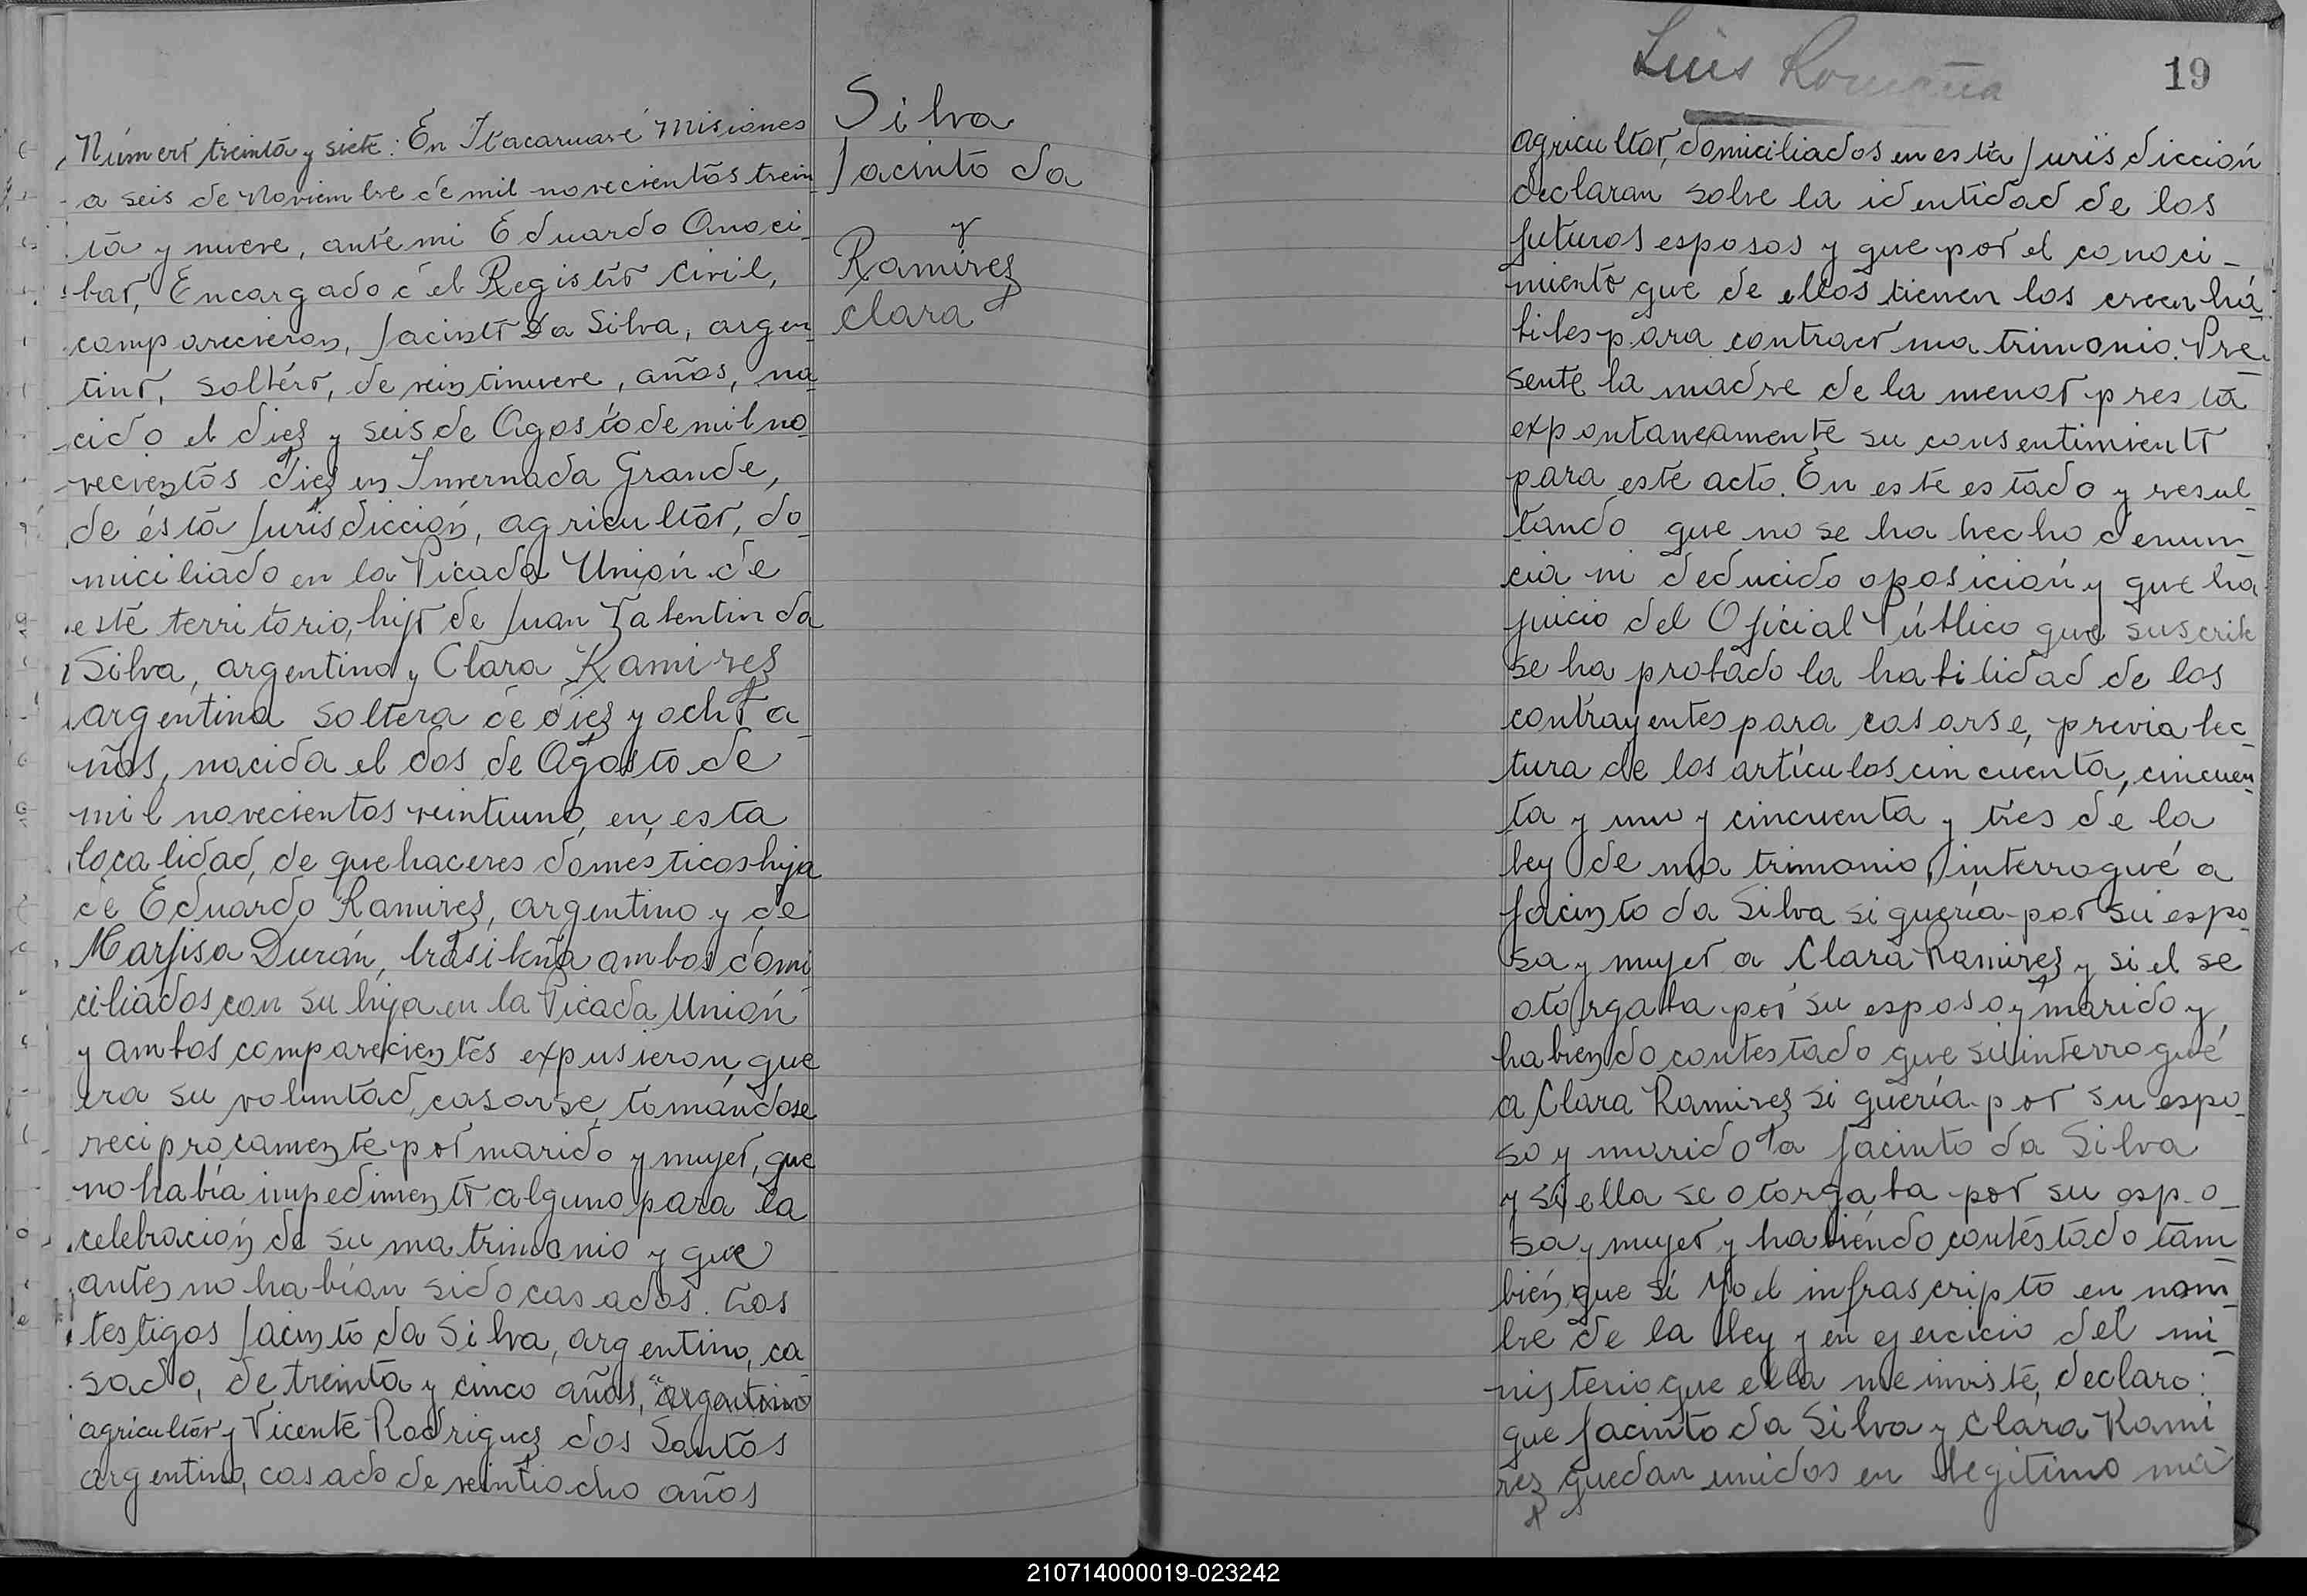 Número treinta y siete: En Itacaruaré Misiones
a seis de Noviembre de mil novecientos trein
ta y nueve, ante mi Eduardo
bar, Encargado del Registro Civil,
comparecieron, Jacinto Da Silva, argen
tino, soltéro, de veintinueve, años, na
cido el diez y seis de Agosto de mil no
vecientos diez en Invernada Grande,
de ésta Jurisdicción, agricultor, do
miciliado en la Picada Unión de
este territorio, hijo de Juan Valentin da
Silva, argentino y Clara Ramirez
argentina soltera de diez y ocho a
ños, nacida el dos de Agosto de
mil novecientos veintiuno, en, esta
localidad, de quehaceres domésticos hija
de Eduardo Ramirez, argentino y de
Marfisa Durán, brasileña ambos domi
ciliados con su hija en la Picada Unión
y ambos comparecientes expusieron, que
era su voluntad, casarse, tomándose
reciprocamente por marido y mujer, que
no había impedimento alguno para la
celebración de su matrimonio y que
antes no habían sido casados. Los
testigos Jacinto da Silva, argentino, ca
sado, de treinta y cinco años, "argentino
agricultor y Vicente Rodriguez dos Santos
argentino, casado de veintiocho años
Silva
Jacinto da
y
Ramirez
Clara
Luis Romaña
19
agricultor, domiciliados en esta Jurisdicción
declaran sobre la identidad de los
futuros esposos y que por el conoci-
miento que de ellos tienen los creen há
biles para contraer matrimonio. Pre
sente la madre de la menor presta
expontaneamente su consentimiento
para este acto. En este estado y resul
tando que no se ha hecho denun
cia ni deducido oposición y que ha
juicio del Oficial Público que suscribe
se ha probado la habilidad de los
contrayentes para casarse, previa lec
tura de los artículos cincuenta, cincuen
ta y uno y cincuenta y tres de la
ley de matrimonio, interrogué a
Jacinto da Silva si quería por su espo
sa y mujer a Clara Ramirez y si el se
otorgaba por su esposo y marido y
habiendo contestado que si interrogué
a Clara Ramirez si quería por su espo
so y marido a Jacinto da Silva
y si ella se otorgaba por su espo
sa y mujer y habiendo contestado tam
bien que si Yo el infrascripto en nom
bre de la ley y en ejercicio del mi
nisterio que ella me inviste, declaro:
que Jacinto da Silva y Clara Rami
rez quedan unidos en legitimo ma
210714000019-023242